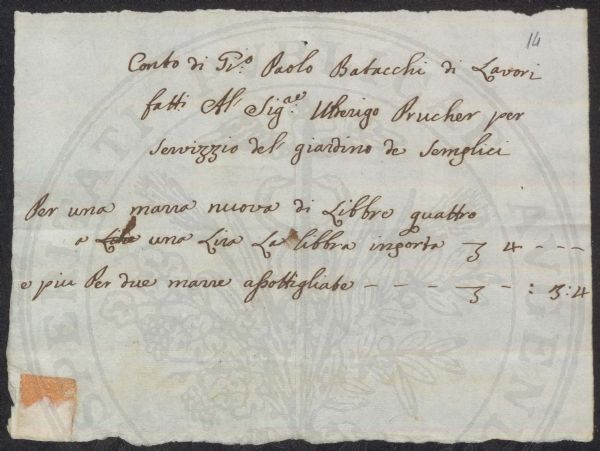 14
Conto di Gi.o Paolo Batacchi di Lavori
fatti Al Sig.re Ulderigo Prucher per
Servizzio del giardino de Semplici
Per una marra nuova di Libbre quattro
a una Lira La libbra inporta 3 4 - - -
e piu Per due marre assottigliate - - - - 3 - : 3:4